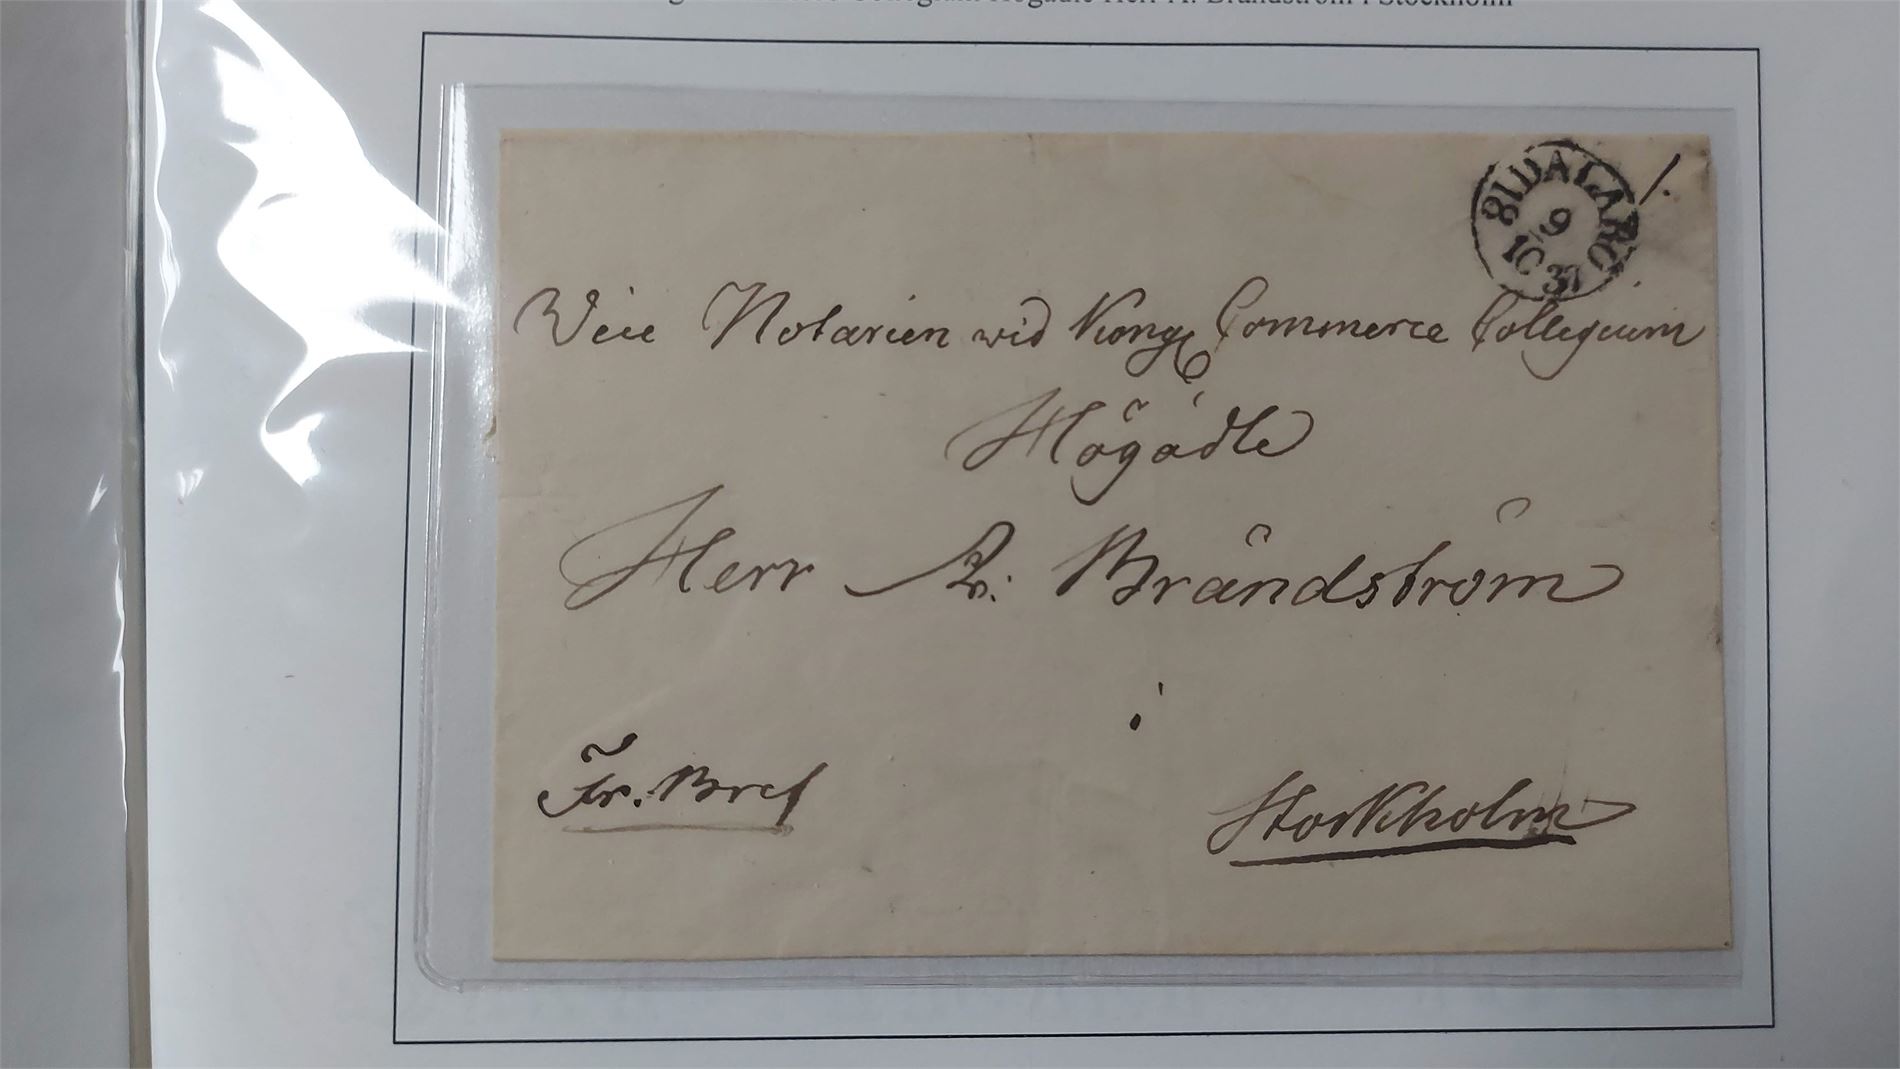 Collegium Högädle Herr A. Brändström i Stockholm
DALARÖ
9
10
Vice Notarien wid Kongl Commerce Collegium
Högädle
Herr A: Brändström
i
Fr. Bref
Stockholm